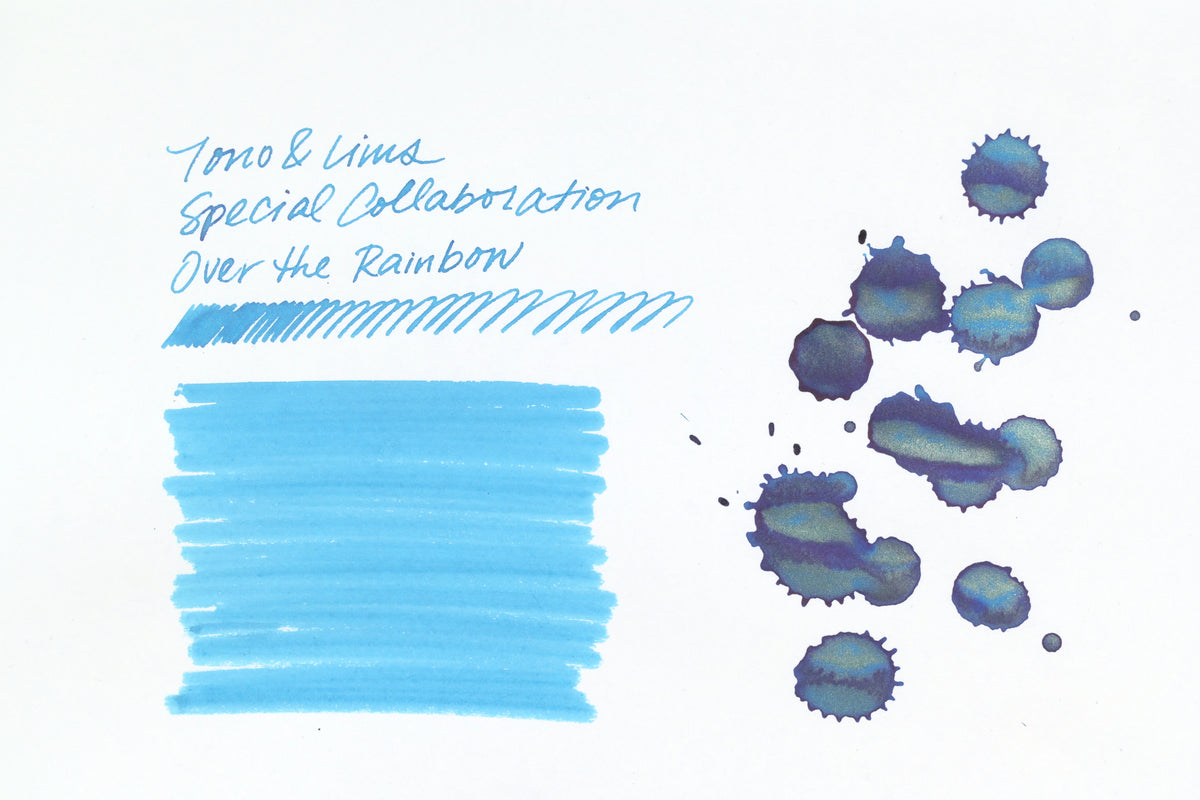 Tono & Lims
Special Collaboration
Over the Rainbow